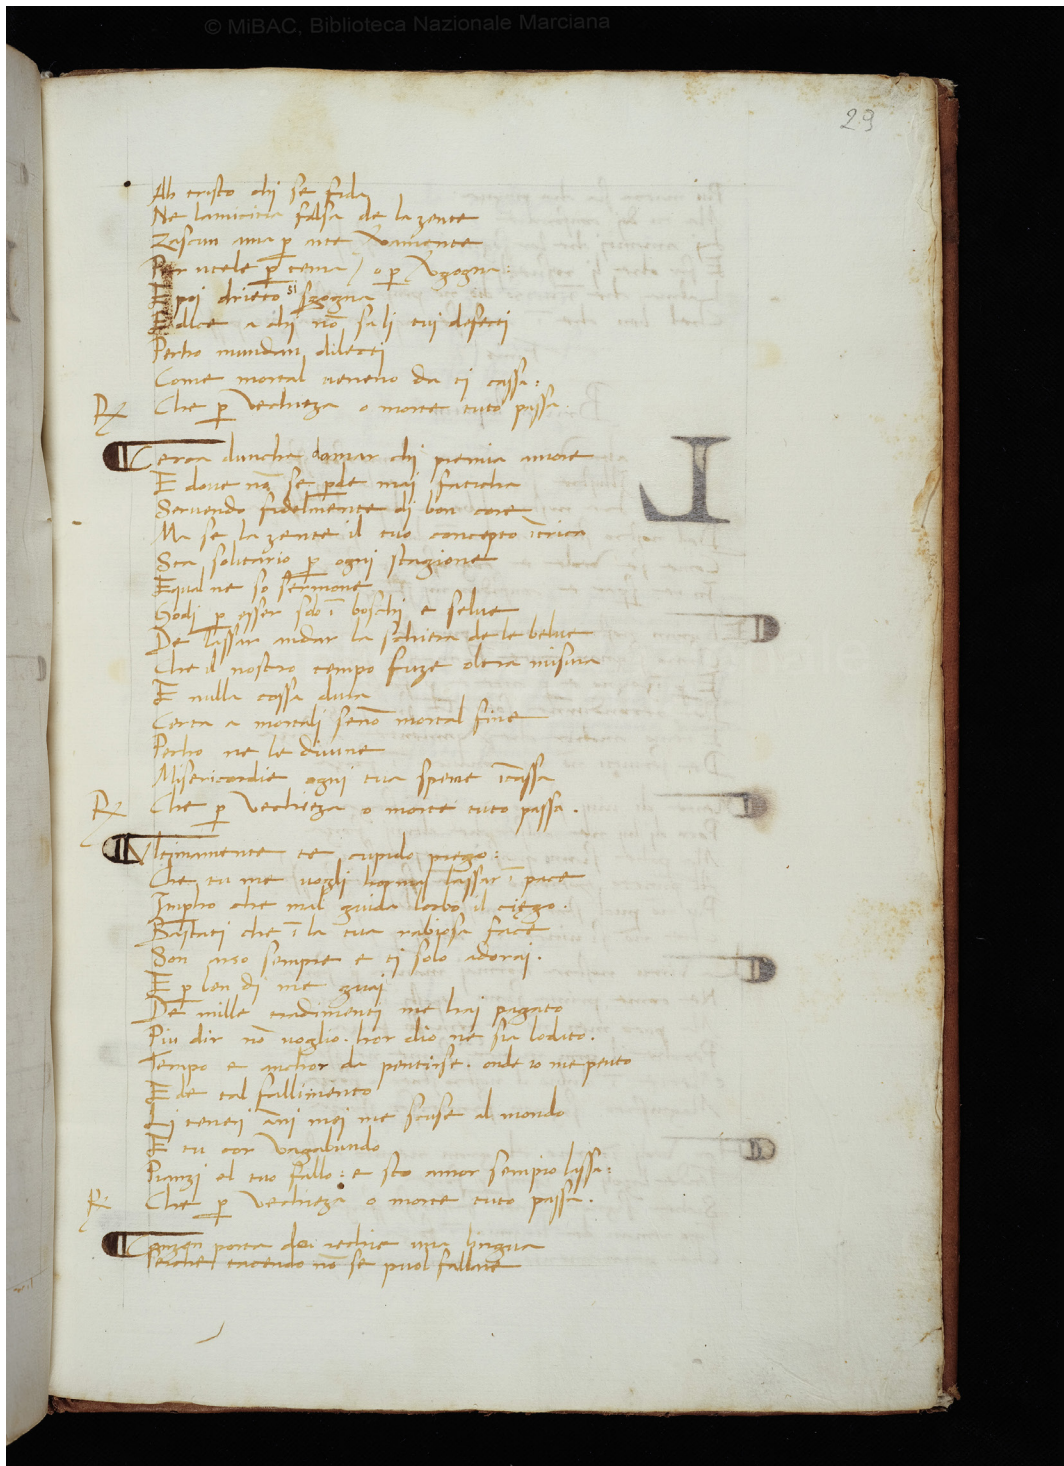 © MiBAC, Biblioteca Nazionale Marciana
29
Ah tristo chi se fida
Ne lamicitia falsa de la zente
Zascun ama ꝑ
Per utele ꝑ tema / o ꝑ
E poi drieto si
E dice a chi nō sa li tuj defecti
Perho mundani dilecti
Come mortal veneno da ti cassa:
Rx Che ꝑ vechieza o morte tuto passa.
Cercaduncha damar chi premia amore
E doue nō se ꝑde maj faticha
Seruendo fidelmente di bon core
Ma se la zente il tuo concepto ītrica
Sta solitario ꝑ ogni stagione
Equal ne so sermone
Godi ꝑ esser solo ī boschi e selue
De lassar andar la schiera de le belue
Che il nostro tempo fuze oltra misura
E nulla cossa dura
Certa a mortali senō mortal fine
Perho ne le diuine
Misericordie ogni tua spene īcassa
Rx Che ꝑ vechieza o morte tuto passa.
Vltimamente te cupido prego:
Che tu me vogli hormai lassar ī pace
Impho che mal guida lorbo il ciego.
Bastati che ī la tua rabiosa face
Son arso sempre e ti solo adoraj.
E ꝑ ben dj me guai
De mille tradimenti me hai pagato
Piu dir nō voglio. hor dio ne sia lodato.
Tempo e anchor da pentirse. onde io me pento
E de tal fallimento
Li teneri āni mei me scuse al mondo
E tu cor vagabundo
Pianzi el tuo fallo: e sto amor sempio lassa:
Rx Che ꝑ vechieza o morte tuto passa.
Canzon porta doi rechie una lingua
Perche tacendo nō se puol fallare